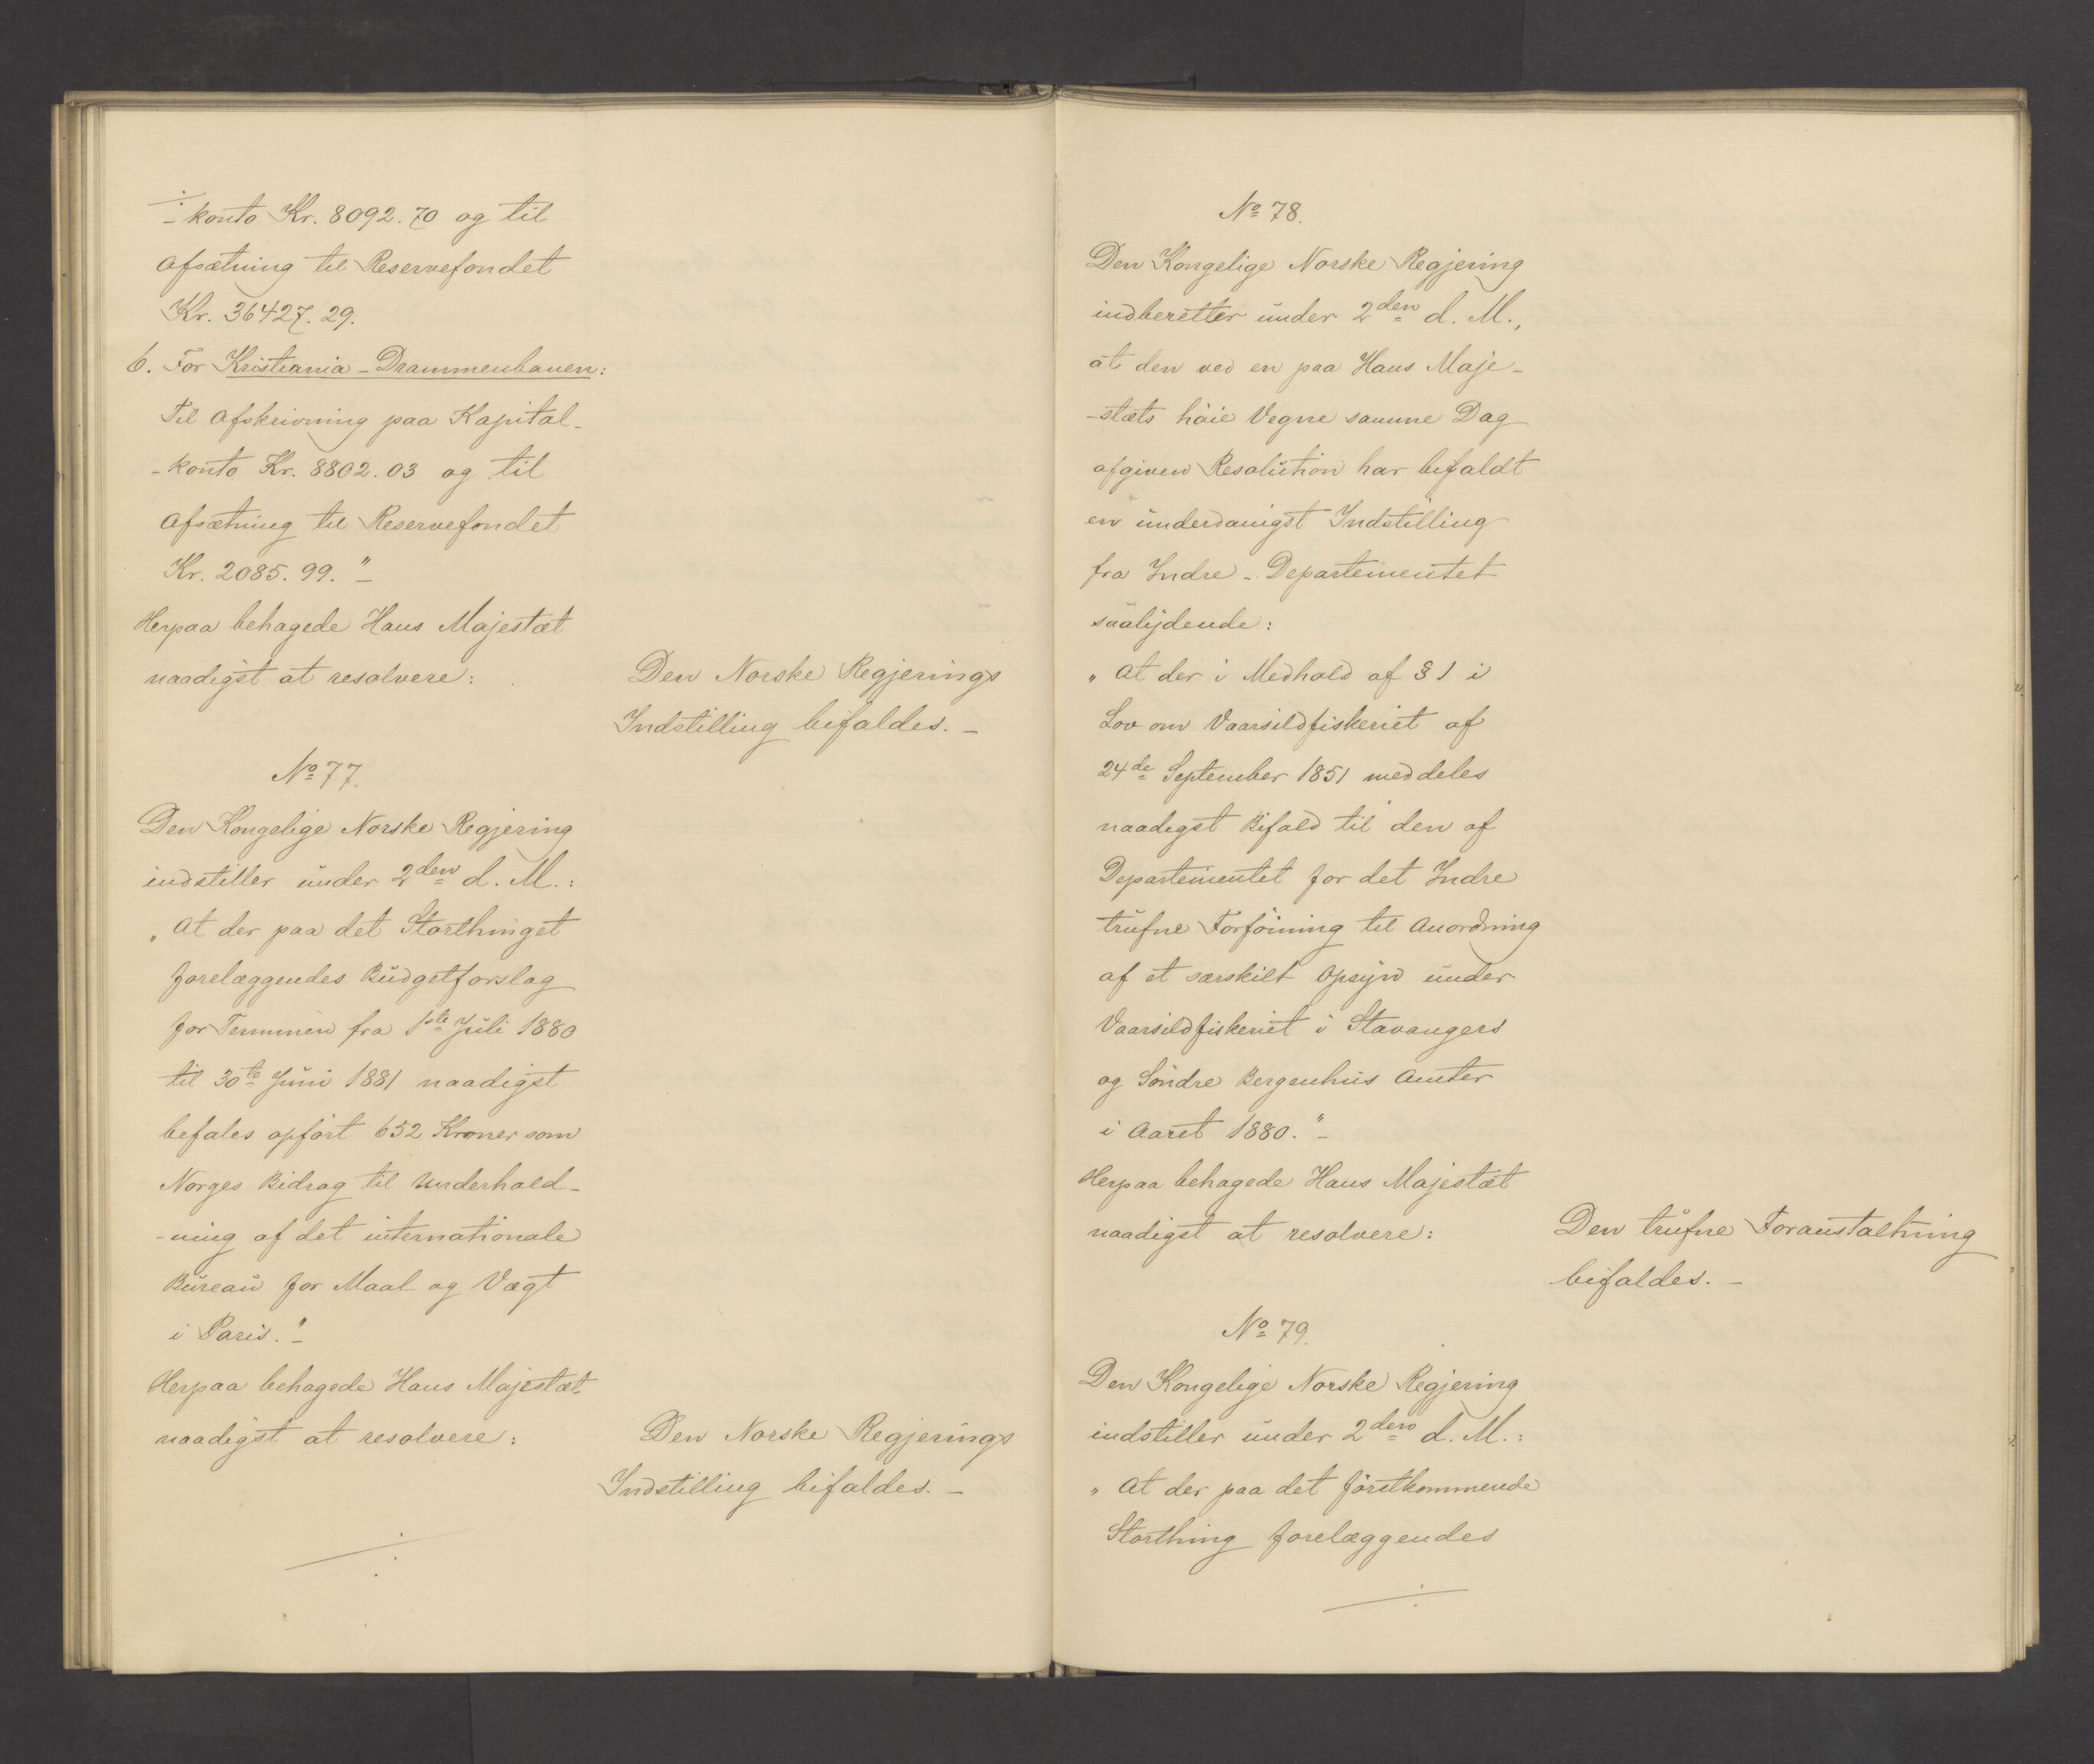 ÷
-konto Kr. 8092.70 og til
Afsætning til Reservefondet
Kr. 36427.29.
6. For Kristiania-Drammenbanen:
Til Afskrivning paa Kapital-
-konto Kr. 8802.03 og til
Afsætning til Reservefondet
Kr. 2085.99."-
Herpaa behagede Hans Majestæt
naadigst at resolvere:
Den Norske Regjerings
Indstilling bifaldes.-
No 77.
Den Kongelige Norske Regjering
indstiller under 2den d. M.:
"At der paa det Storthinget
forelæggendes Budgetforslag
for Terminen fra 1ste Juli 1880
til 30te Juni 1881 naadigst
befales opført 652 Kroner som
Norges Bidrag til Underhold-
-ning af det internationale
Bureau for Maal og Vægt
i Paris."-
Herpaa behagede Hans Majestæt
naadigst at resolvere:
Den Norske Regjerings
Indstilling bifaldes.-
÷
No 78.
Den Kongelige Norske Regjering
indberetter under 2den d. M.,
at den ved en paa Hans Maje-
-stæts höie Vegne samme Dag
afgiven Resolution har bifaldt
en underdanigst Indstilling
fra Indre-Departementet
saalydende:
"At der i Medhold af § 1 i
Lov om Vaarsildfiskeriet af
24de September 1851 meddeles
naadigst Bifald til den af
Departementet for det Indre
trufne Forföining til Anordning
af et særskilt Opsyn under
Vaarsildfiskeriet i Stavangers
og Söndre Bergenhus Amter
i Aaret 1880."-
Herpaa behagede Hans Majestæt
naadigst at resolvere:
Den trufne Foranstaltning
bifaldes.-
No 79.
Den Kongelige Norske Regjering
indstiller under 2den d. M.:
"At der paa det förstkommende
Storthing forelæggendes
÷